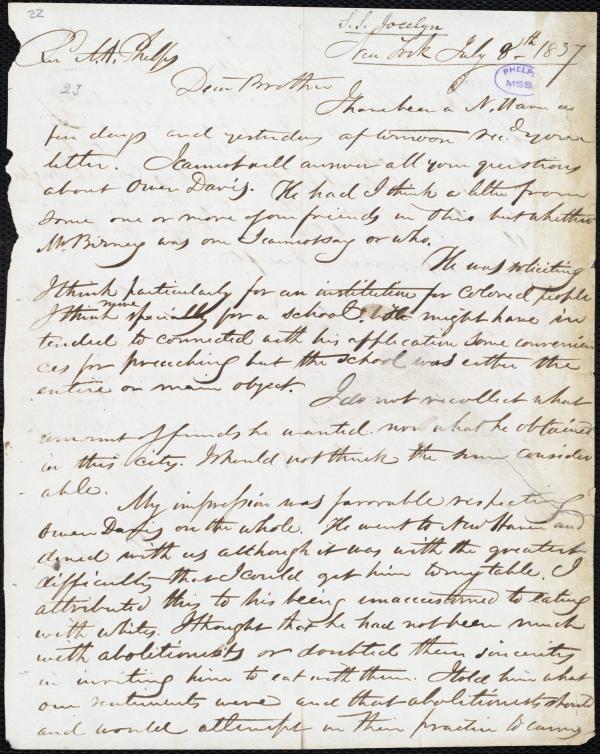 22
S. S. Jocelyn
New York July 8th 1837
Rev A. A. Phelps
PHELPS
MSS.
23
Dear Brother
I have been a N. Haven a
few days and yesterday afternoon rec.d your
letter. I cannot well answer all your questions
about Owen Davis. He had I think a letter from
some one or more of your friends in this but whether
Mr Birney was one I cannot say or who.
He was soliciting
I think particularly for an institution for colored people
I think more specially for a school. He might have in
tended to connected with his application some convenien
ces for preaching but the school was either the
entire or main object.
I do not recollect what
amount of funds he wanted nor what he obtained
in this city. I should not think the sum consider
able.
My impression was favorable respecting
Owen Davis on the whole. He went to New Haven and
dined with us although it was with the greatest
difficulty that I could get him to my table. I
attributed this to his being unaccustomed to eating
with whites. I thought that he had not been much
with abolitionists or doubted their sincerity
in inviting him to eat with them. I told him what
our sentiments were and that abolitionists should
and would attempt in their practice to carry